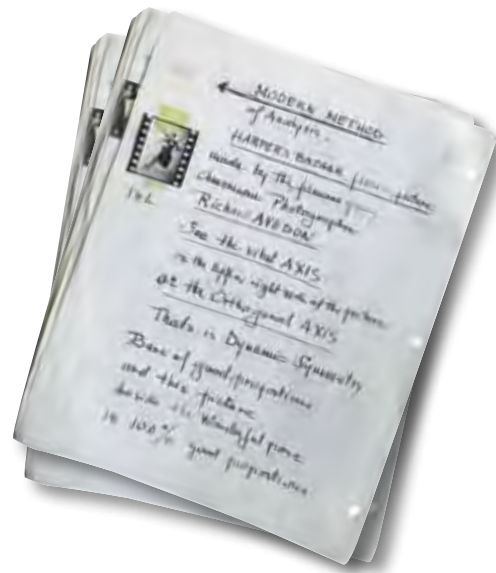 MODERN METHOD
of Analysis.
HARPER'S BAZAAR picture
made by the famous
Photographer
Richard AVEDON
See the vital AXIS
in the upper right side of the picture
at the Orthogonal AXIS
Thats is Dynamic Symmetry
Base of good proportions
and this picture
beside the wonderful pose
is 100% good proportions